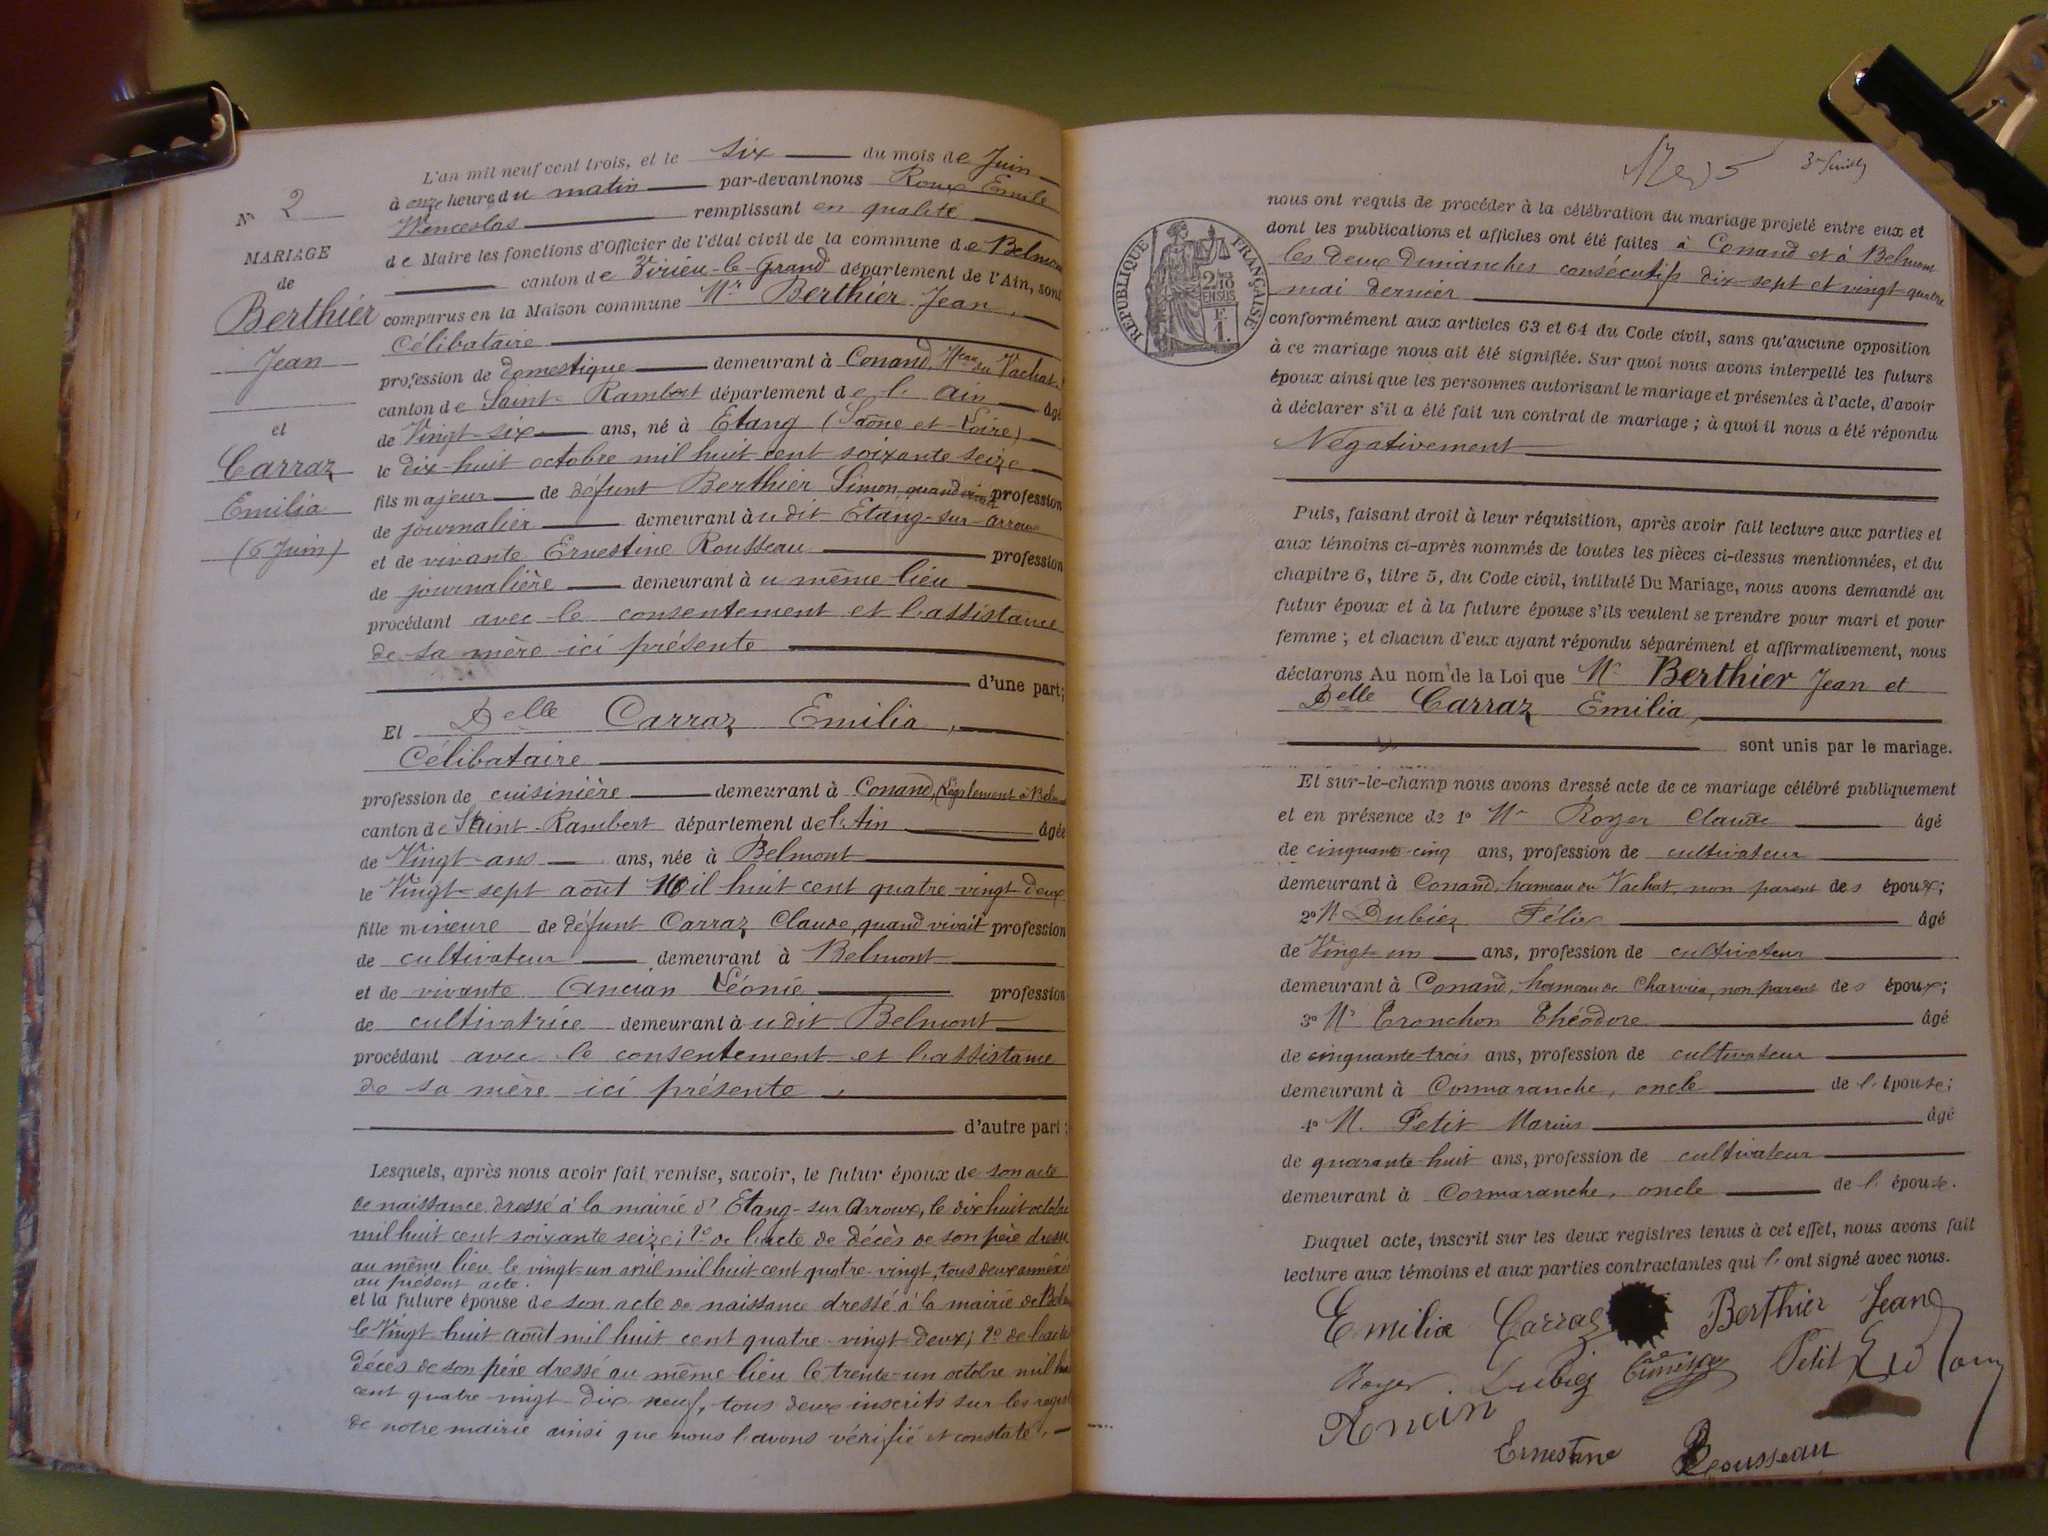 N° 2
MARIAGE
de
Berthier
Jean
et
Carraz
Emilia
(6 Juin)
L'an mil neuf cent trois, et le six du mois de Juin
à onze heures du matin par-devant nous Roux Emile
Wenceslas remplissant en qualité
de Maire les fonctions d'Officier de l'état civil de la commune de Belmont
canton de Virieu-le-Grand département de l'Ain, sont
comparus en la Maison commune Mr Berthier Jean,
Célibataire
profession de domestique demeurant à Conand, Heau du Vachat,
canton de Saint-Rambert département de l'ain âgé
de Vingt-six ans, né à Etang (Saône et-Loire)
le dix-huit octobre mil huit cent soixante seize
fils majeur de défunt Berthier Simon, quand vivait profession
de journalier demeurant à udit Etang-sur-arroux
et de vivante Ernestine Rousseau profession
de journalière demeurant à u même lieu
procédant avec le consentement et l'assistance
de sa mère ici présente
d'une part;
Et Delle Carraz Emilia,
Célibataire
profession de cuisinière demeurant à Conand, (légalement à Belmont
canton de Saint-Rambert département de l'Ain âgée
de Vingt-ans ans, née à Belmont
le Vingt-sept août Mil huit cent quatre-vingt-deux
fille mineure de défunt Carraz Claude, quand vivait profession
de cultivateur demeurant à Belmont
et de vivante Ancian Léonie profession
de cultivatrice demeurant à udit Belmont
procédant avec le consentement et l'assistance
de sa mère ici présente,
d'autre part;
Lesquels, après nous avoir fait remise, savoir, le futur époux de son acte
de naissance dressé à la mairie d'Etang-sur Arroux, le dix huit octobre
mil huit cent soixante seize; 2° de l'acte de décès de son père dressé
au même lieu le vingt-un avril mil huit cent quatre-vingt, tous deux annexés
au présent acte.
et la future épouse de son acte de naissance dressé à la mairie de Belmont
le Vingt-huit août mil huit cent quatre-vingt-deux; 2° de l'acte
décès de son père dressé au même lieu le trente-un octobre mil huit
cent quatre vingt dix neuf, tous deux inscrits sur les registres
de notre mairie ainsi que nous l'avons vérifié et constaté,
3me feuillet
RÉPUBLIQUE FRANÇAISE
2/10 EN SUS
1 F.
nous ont requis de procéder à la célébration du mariage projeté entre eux et
dont les publications et affiches ont été faites à Conand et à Belmont
les deux dimanches consécutifs dix-sept et vingt-quatre
mai dernier
conformément aux articles 63 et 64 du Code civil, sans qu'aucune opposition
à ce mariage nous ait été signifiée. Sur quoi nous avons interpellé les futurs
époux ainsi que les personnes autorisant le mariage et présentes à l'acte, d'avoir
à déclarer s'il a été fait un contrat de mariage; à quoi il nous a été répondu
Négativement
Puis, faisant droit à leur réquisition, après avoir fait lecture aux parties et
aux témoins ci-après nommés de toutes les pièces ci-dessus mentionnées, et du
chapitre 6, titre 5, du Code civil, intitulé Du Mariage, nous avons demandé au
futur époux et à la future épouse s'ils veulent se prendre pour mari et pour
femme; et chacun d'eux ayant répondu séparément et affirmativement, nous
déclarons Au nom de la Loi que Mr Berthier Jean et
Delle Carraz Emilia,
sont unis par le mariage.
Et sur-le-champ nous avons dressé acte de ce mariage célébré publiquement
et en présence de 1° Mr Royer Claude âgé
de cinquante-cinq ans, profession de cultivateur
demeurant à Conand, hameau du Vachat, non parent des époux;
2° M. Dubiez Félix âgé
de Vingt-un ans, profession de cultivateur
demeurant à Conand, hameau de Charvieu, non parent des époux;
3° Mr Tronchon Théodore âgé
de cinquante-trois ans, profession de cultivateur
demeurant à Cormaranche, oncle de l'épouse;
4° M. Petit Marius âgé
de quarante-huit ans, profession de cultivateur
demeurant à Cormaranche, oncle de l'épouse.
Duquel acte, inscrit sur les deux registres tenus à cet effet, nous avons fait
lecture aux témoins et aux parties contractantes qui l'ont signé avec nous.
Emilia Carraz Berthier Jean
Royer. Dubiez Petit E. Roux
Ancian
Ernestine Rousseau